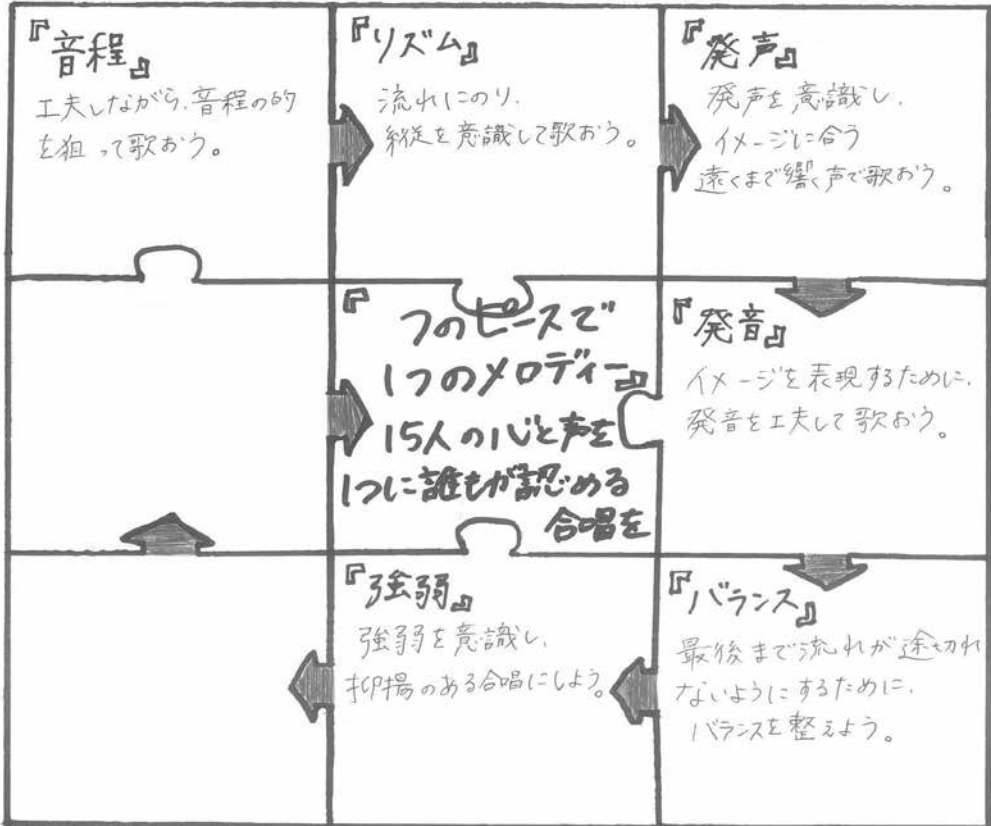 『音程』
工夫しながら、音程の的
を狙って歌おう。
『リズム』
流れにのり、
縦を意識して歌おう。
『発声』
発声を意識し、
イメージに合う
遠くまで響く声で歌おう。
『 つのピースで
1つのメロディー』
15人の心と声を
1つに誰もが認める
合唱を
『発音』
イメージを表現するために、
発音を工夫して歌おう。
『強弱』
強弱を意識し、
抑揚のある合唱にしよう。
『バランス』
最後まで流れが途切れ
ないようにするために、
バランスを整えよう。